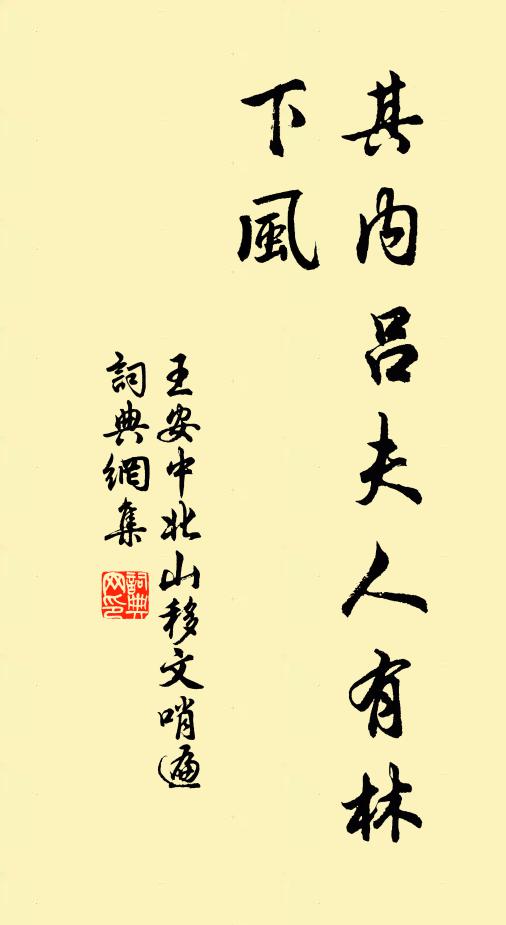 其內呂夫人有林
下風
王安中北山移文哨遍
詞典網集
詞典网印